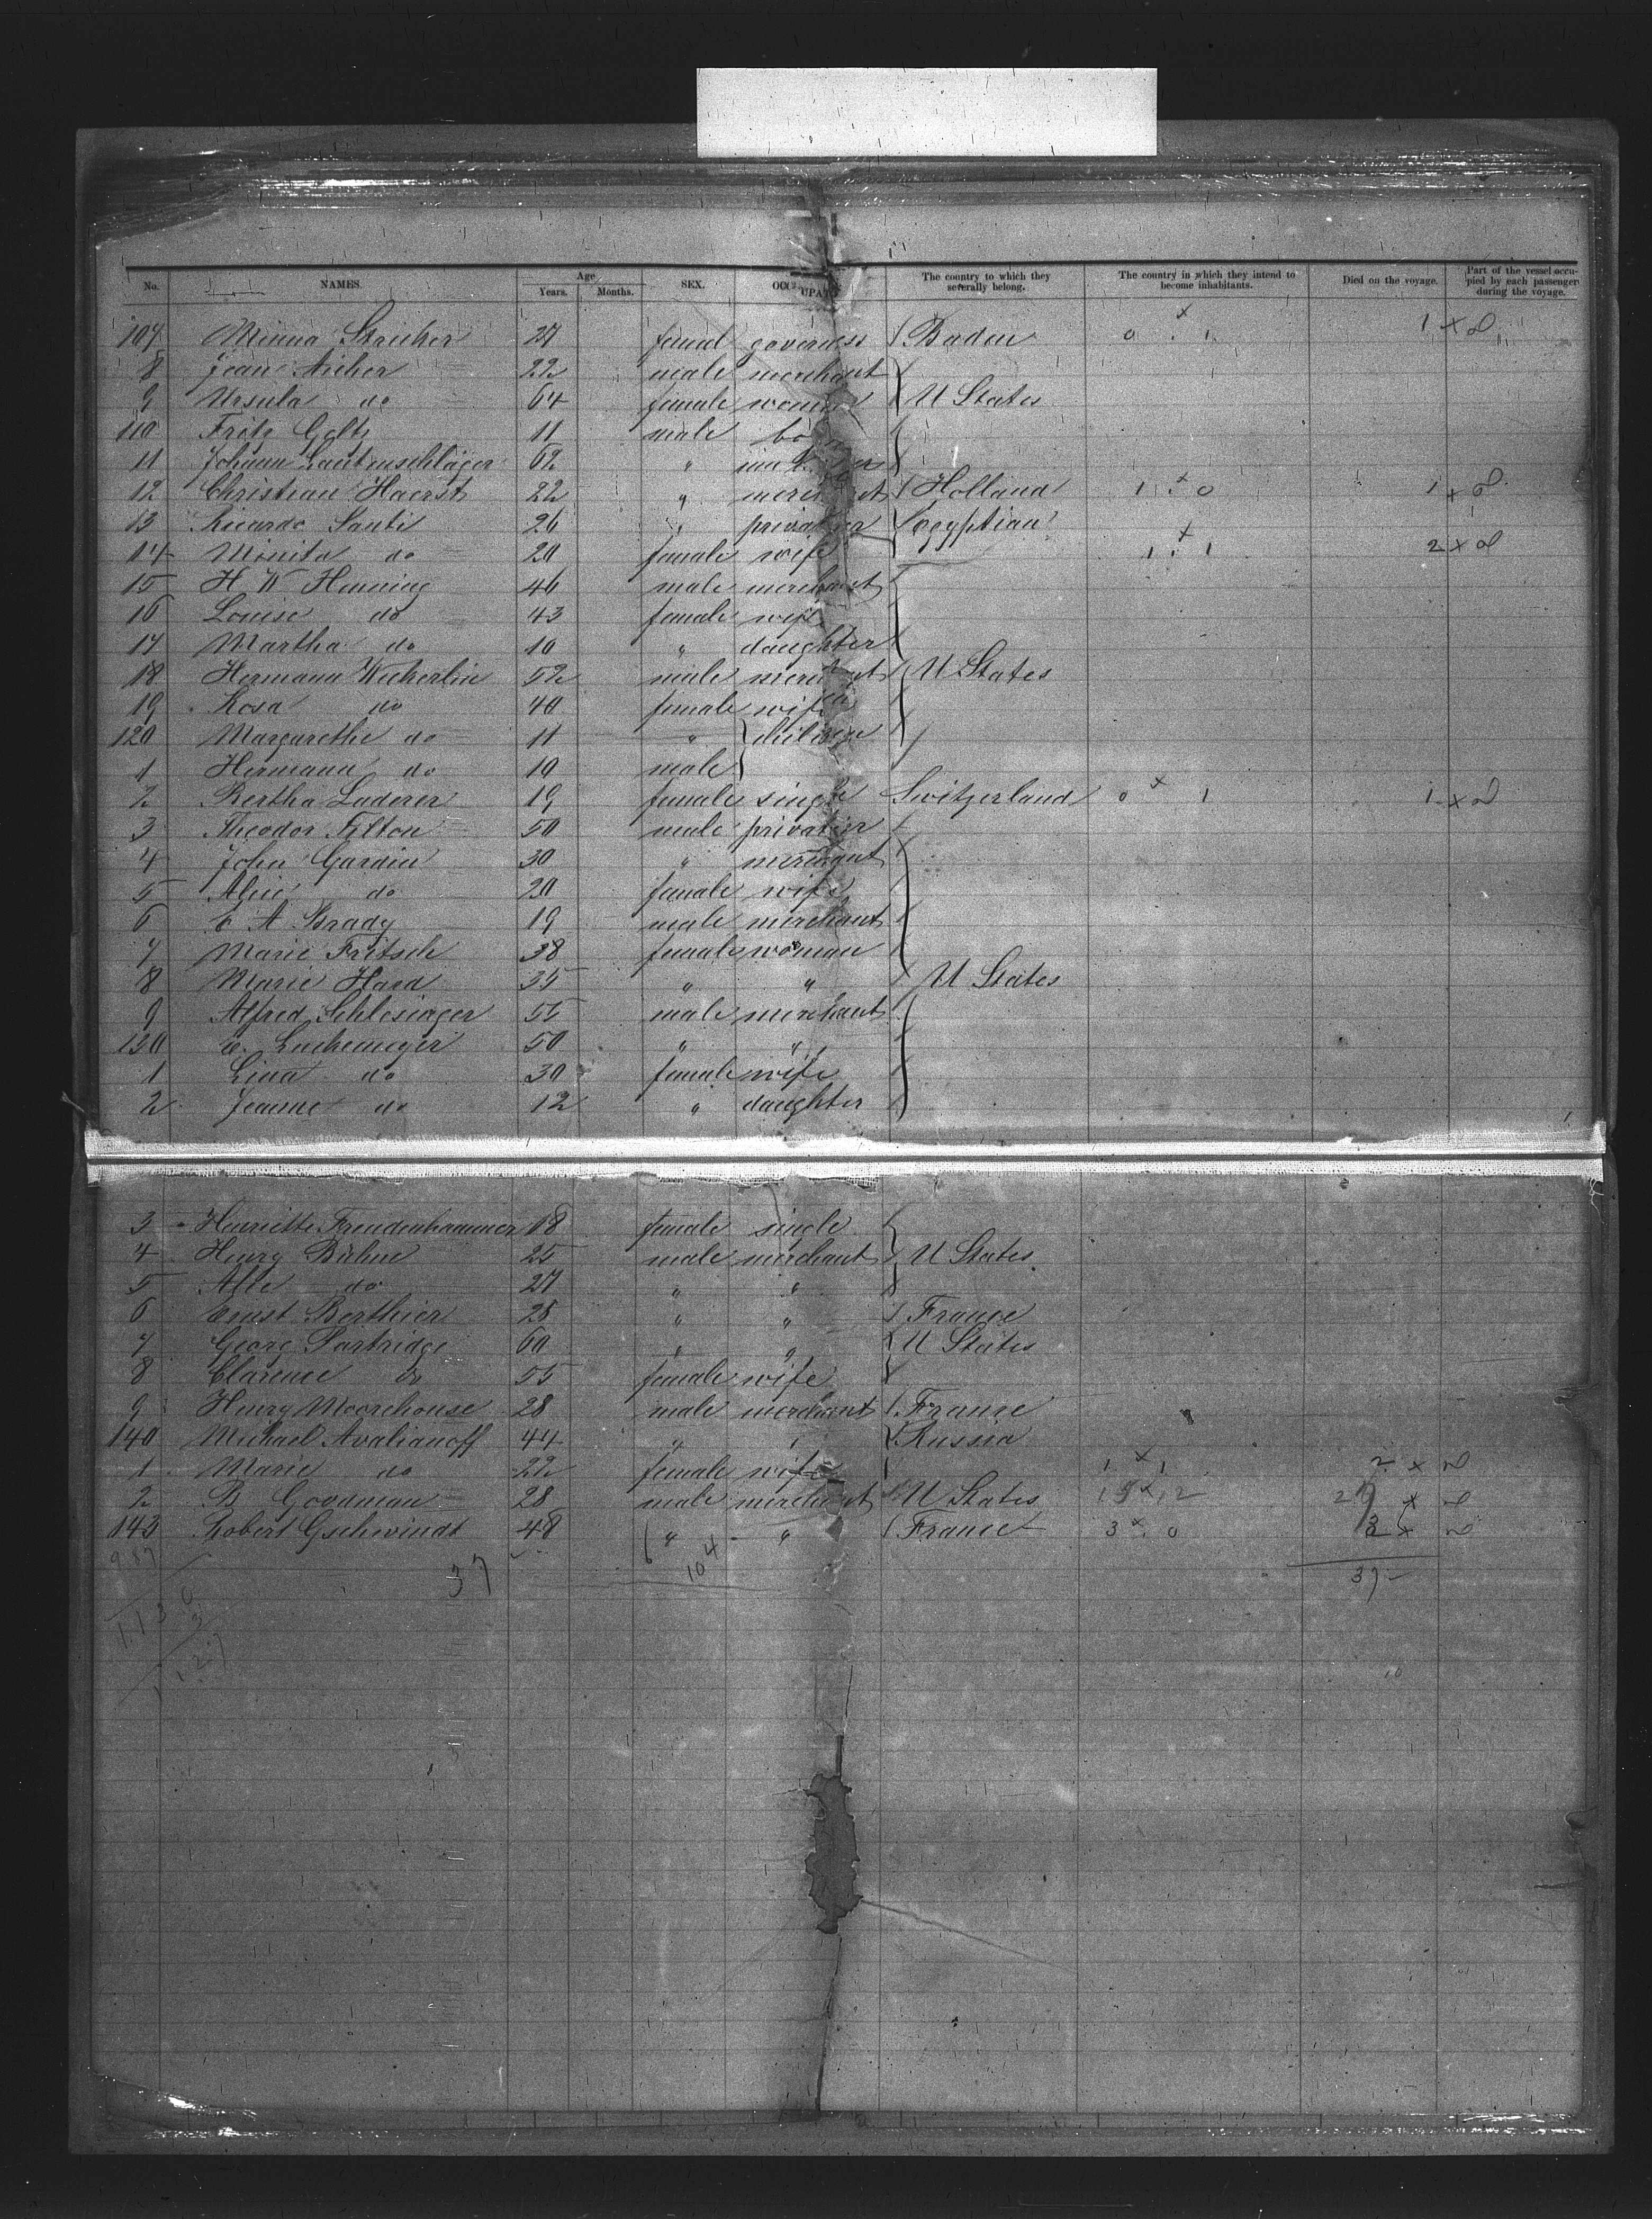 No. NAMES. Age Years. Months. SEX. OCCUPATION The country to which they severally belong. The country in which they intend to become inhabitants. Died on the voyage. Part of the vessel occupied by each passenger during the voyage.
107 Minna Stricker 27 femal governess Baden 0 x 1 1 x
8 Jean Aicher 22 male merchant
9 Ursula do 64 female woman U States
110 Fritz Goltz 11 male boy
11 Johann Lautenschläger 62 "
12 Christian Haerst 22 " merchant Holland 1 x 0 1 x
13 Ricardo Santi 26 " privatier Egyptian
14 Minita do 20 female wife 1 x 1 2 x
15 H W Henning 46 male merchant
16 Louise do 43 female wife
17 Martha do 10 " daughter
18 Hermann Weckerlin 52 male merchant U States
19 Rosa do 40 female wife
120 Margarethe do 11 " children
1 Hermann do 10 male
2 Bertha Laderer 19 female single Switzerland 0 x 1 1 x
3 Theodor Filton 50 male privatier
4 John Gardin 30 " merchant
5 Alice do 20 female wife
6 E A Brady 19 male merchant
7 Marie Fritsch 38 female woman
8 Marie Hard 35 " " U States
9 Alfred Schlesinger 55 male merchant
130 E. Luchsinger 50 " "
1 Lina do 30 female wife
2 Jeanne do 12 " daughter
3 Henriette Freudenhammer 18 female single
4 Henry Bühne 25 male merchant U States
5 do 27 " "
6 Ernst Berthier 25 " " France
7 Georg Partridge 60 " " U States
8 Clarence do 55 female wife
9 Henry Moorehouse 28 male merchant France
140 Michael Avalianoff 44 " " Russia
1 Marie do 22 female wife 1 x 1 2 x
2 B Goodman 28 male merchant U States x 12 x
143 Robert Gschwindt 48 " " France 3 x 0 3 x
987 37 104 37